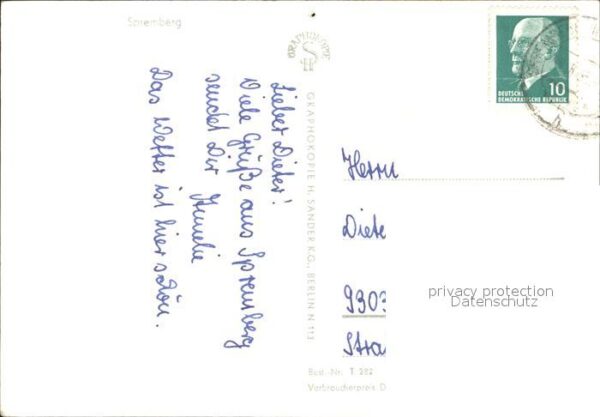 Spremberg
Lieber Dieter!
Viele Grüße aus Spremberg
sendet Dir
Das Wetter ist hier schön.
GRAPHOKOPIE
GRAPHOKOPIE H. SANDER KG., BERLIN N 113
10
DEUTSCHE
DEMOKRATISCHE REPUBLIK
Herrn
Diete
9303
Stra
privacy protection
Datenschutz
Best. Nr. T 282
Verbraucherpreis D